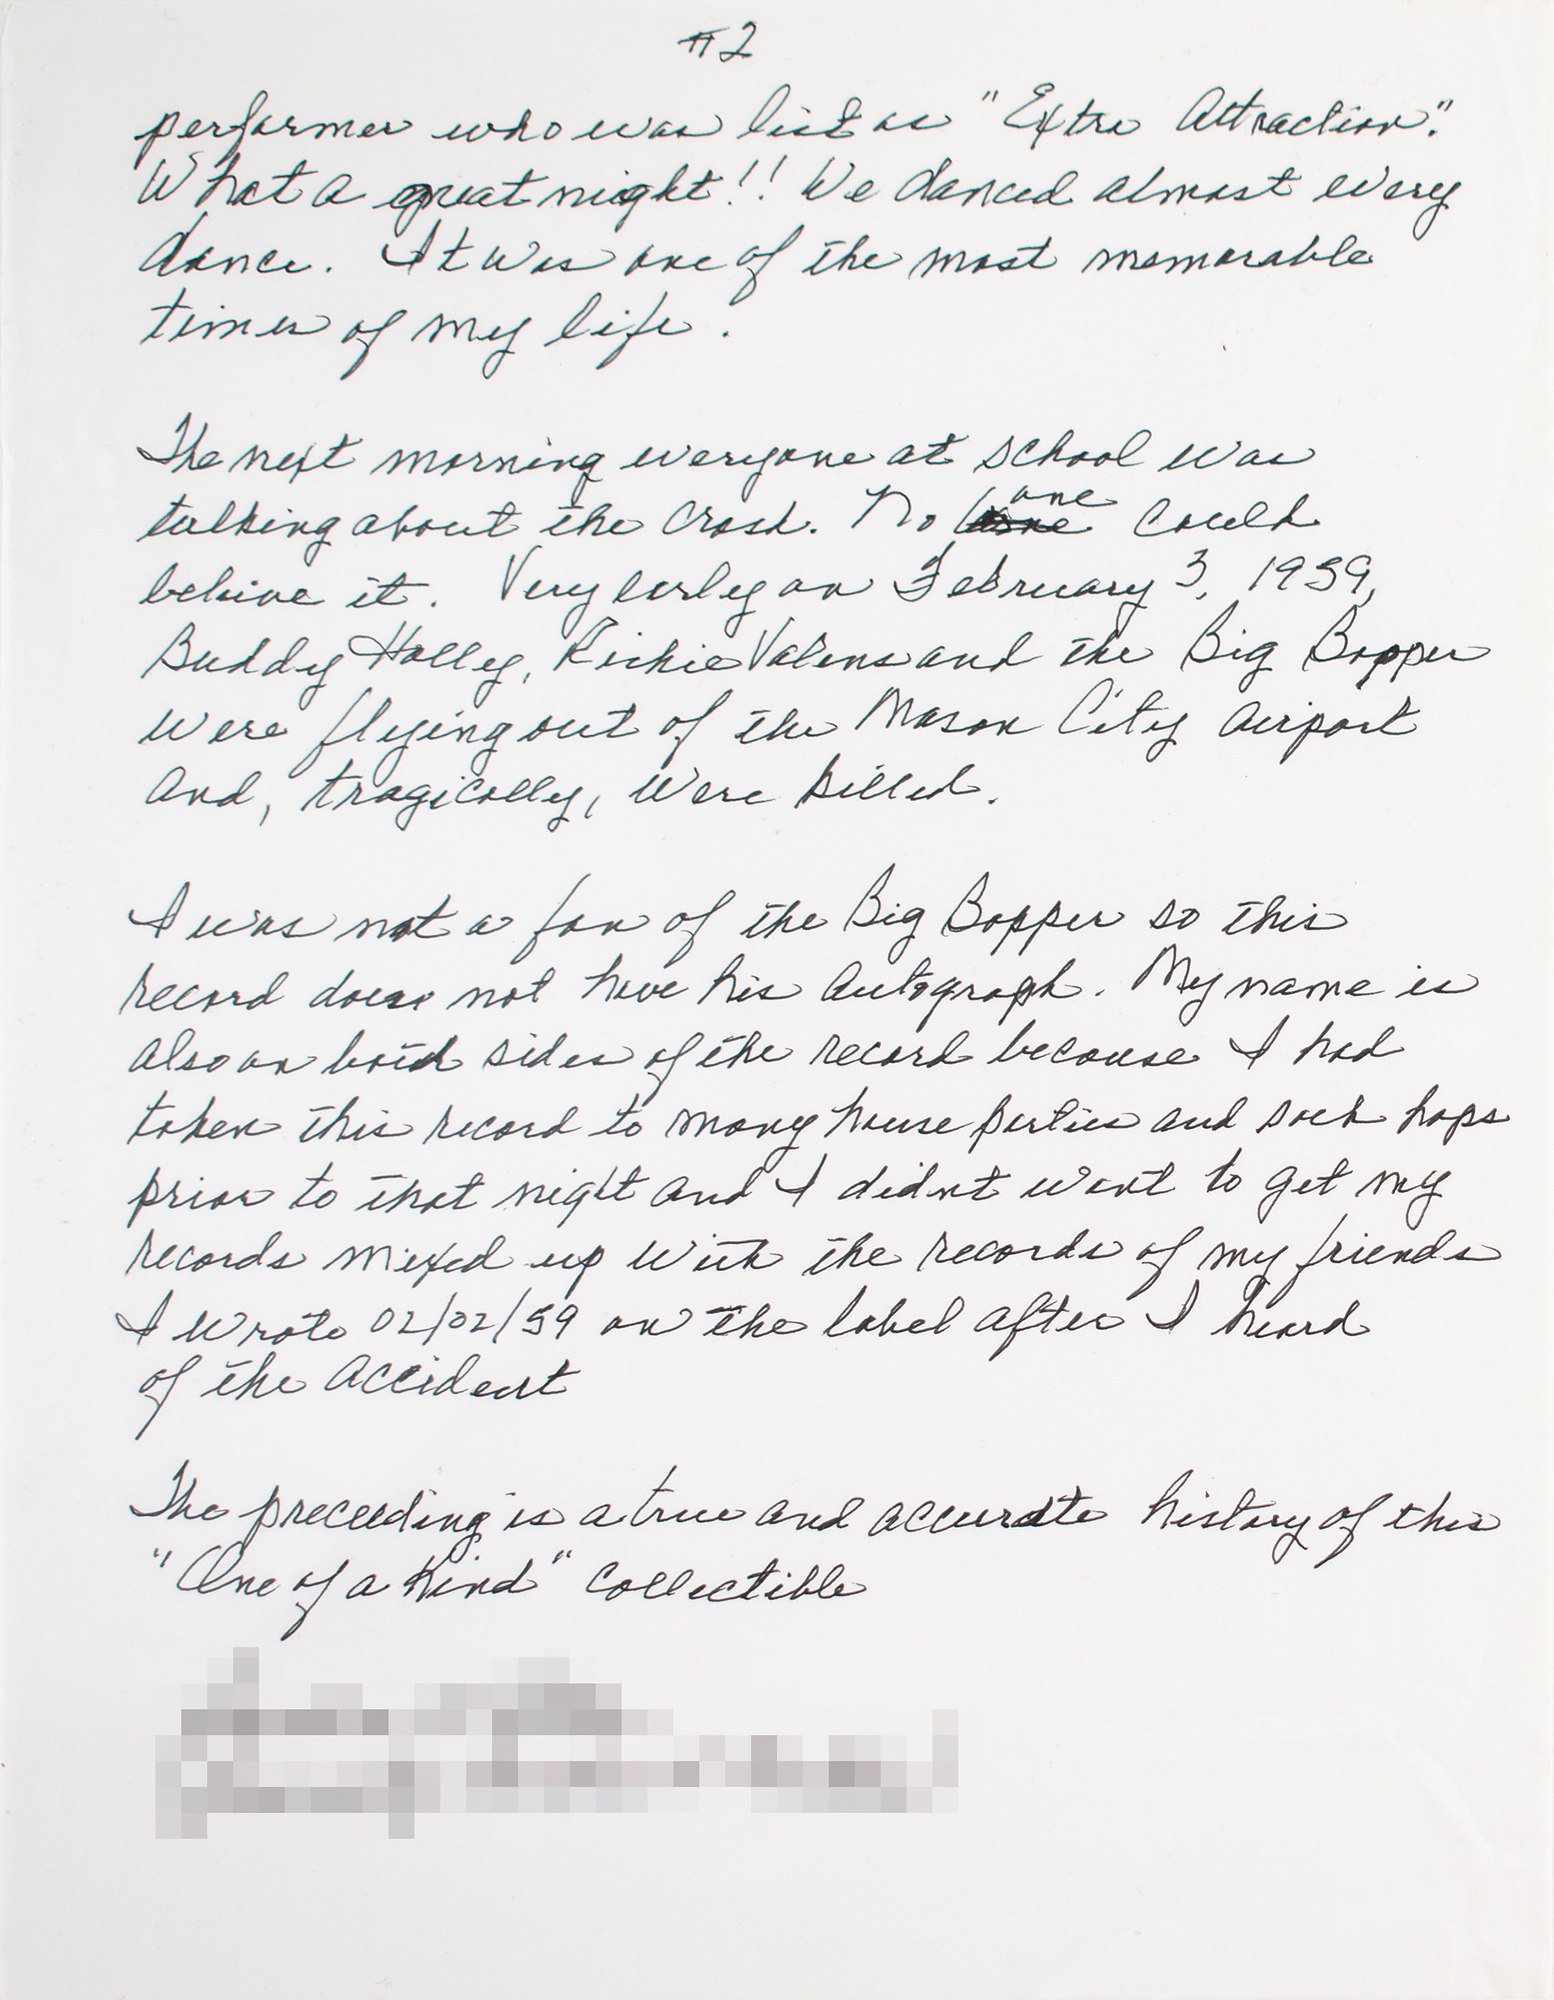 #2
performer who was list as "Extra Attraction".
What a great night!! We danced almost every
dance. It was one of the most memorable
times of my life.
The next morning everyone at school was
talking about the crash. No one could
belive it. Very early on February 3, 1959,
Buddy Holley, Richie Valens and the Big Bopper
were flying out of the Mason City Airport
and, tragically, were killed.
I was not a fan of the Big Bopper so this
record does not have his autograph. My name is
also on both sides of the record because I had
taken this record to many house parties and sock hops
prior to that night and I didnt want to get my
records mixed up with the records of my friends
I wrote 02/02/59 on the label after I heard
of the accident
The preceeding is a true and accurate history of this
"One of a Kind" collectible